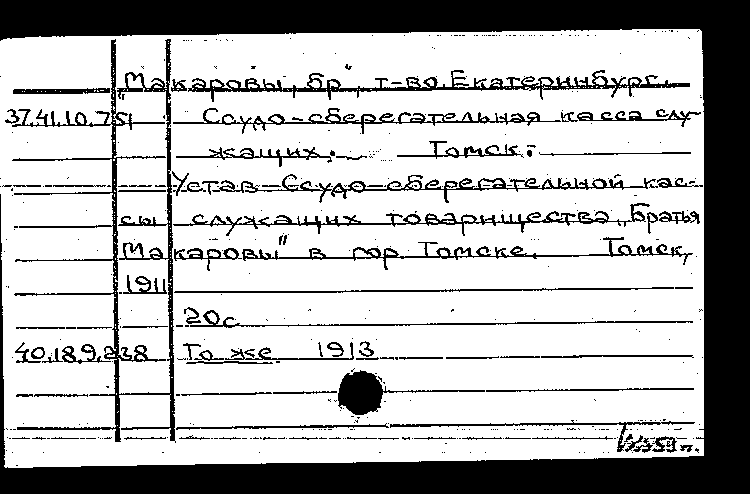 "Макаровы, бр", т-во. Екатеринбург.
37.41.10.751 Ссудо-сберегательная касса слу-
жащих. Томск.
Устав Ссудо-сберегательной кас-
сы служащих товарищества „Братья
Макаровы" в гор. Томске. Томск,
1911
20с
40.18.9.238 То же 1913